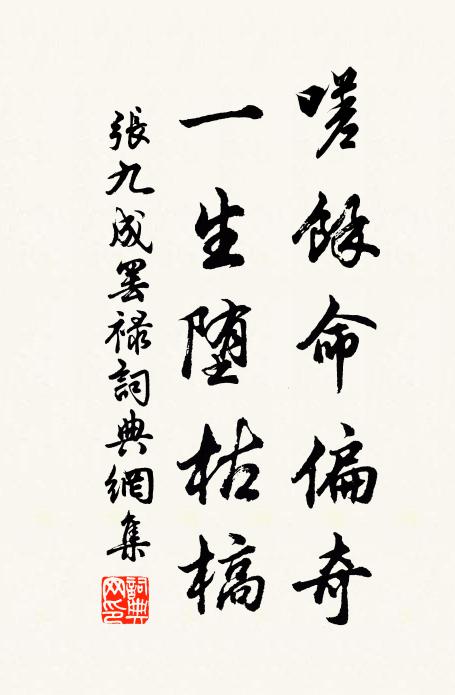 嗟餘命偏奇
一生堕枯槁
張九成罢祿詞典網集
詞典网印